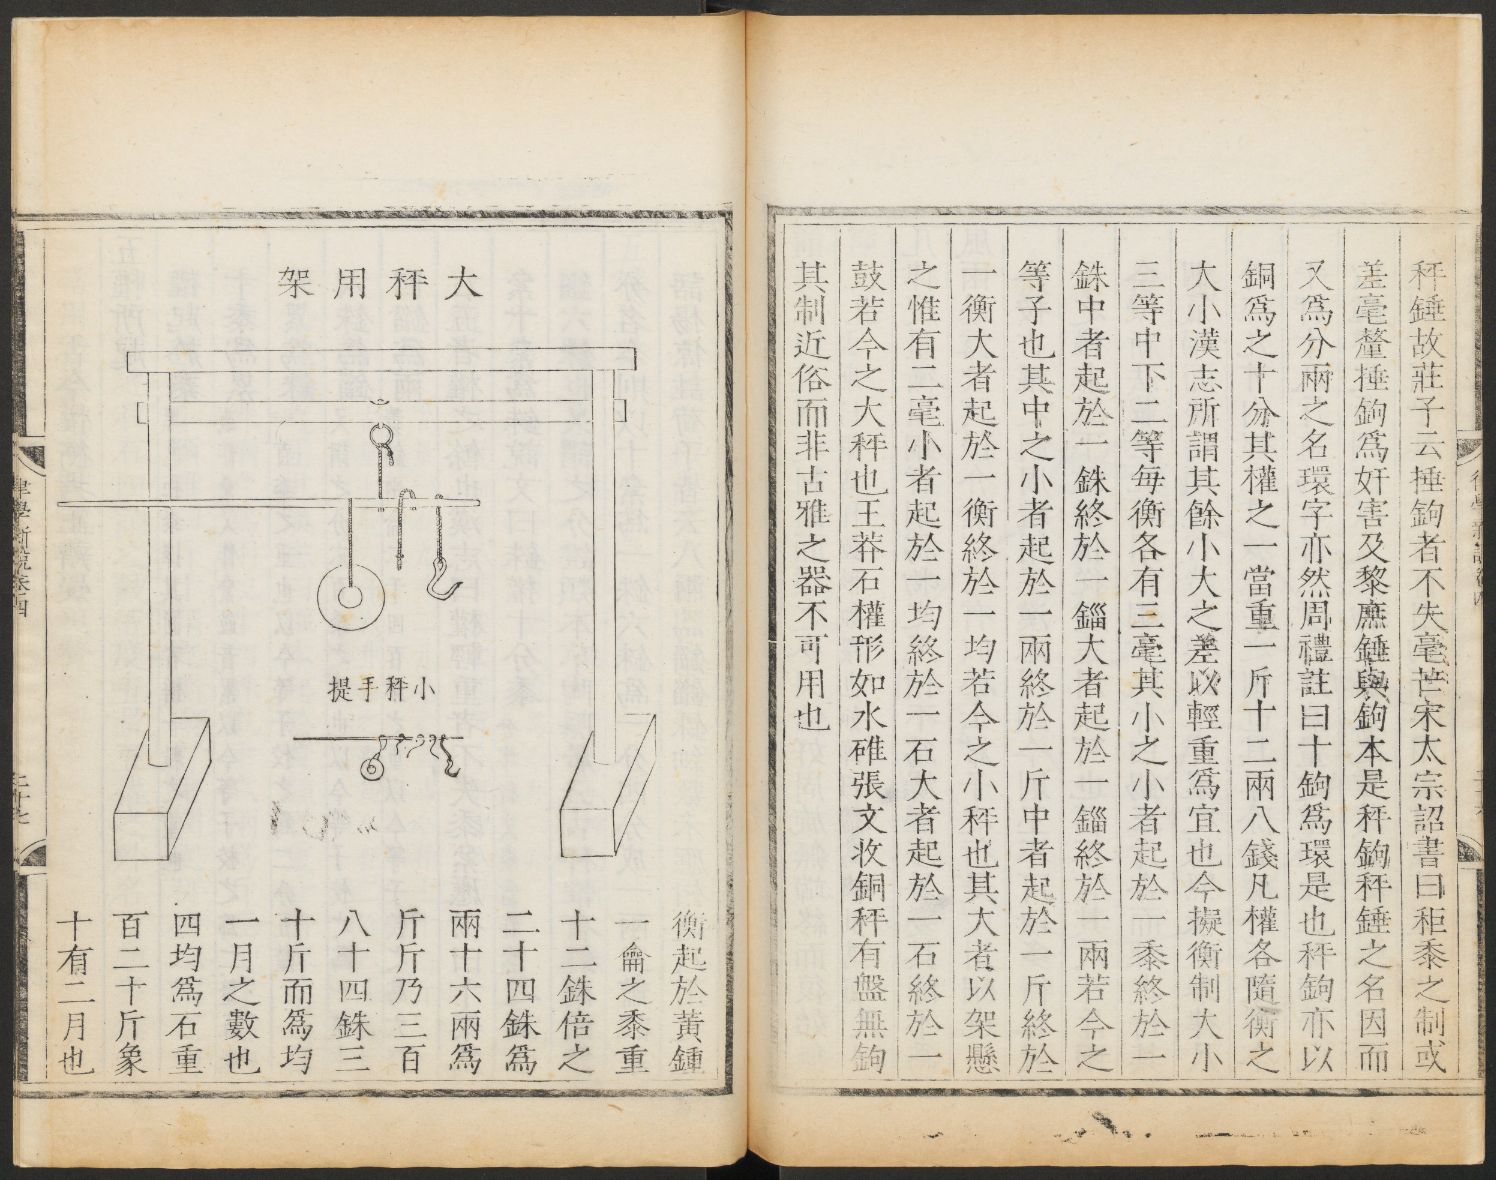 秤錘故莊子云捶鉤者不失毫芒宋太宗詔書曰秬黍之制或
差毫釐捶鉤爲奸害及黎庶錘與鉤本是秤鉤秤錘之名因而
又爲分兩之名環字亦然周禮註曰十鉤爲環是也秤鉤亦以
銅爲之十分其權之一當重一斤十二兩八錢凡權各隨衡之
大小漢志所謂其餘小大之差以輕重爲宜也今擬衡制大小
三等中下二等每衡各有三毫其小之小者起於一黍終於一
銖中者起於一銖終於一錙大者起於一錙終於一兩若今之
等子也其中之小者起於一兩終於一斤中者起於一斤終於
一衡大者起於一衡終於一均若今之小秤也其大者以架懸
之惟有二毫小者起於一均終於一石大者起於一石終於一
鼓若今之大秤也王莽石權形如水碓張文收銅秤有盤無鉤
其制近俗而非古雅之器不可用也
大秤用架
小秤手提
衡起於黃鍾
一龠之黍重
十二銖倍之
二十四銖爲
兩十六兩爲
斤斤乃三百
八十四銖三
十斤而爲均
一月之數也
四均爲石重
百二十斤象
十有二月也
律學新說卷四